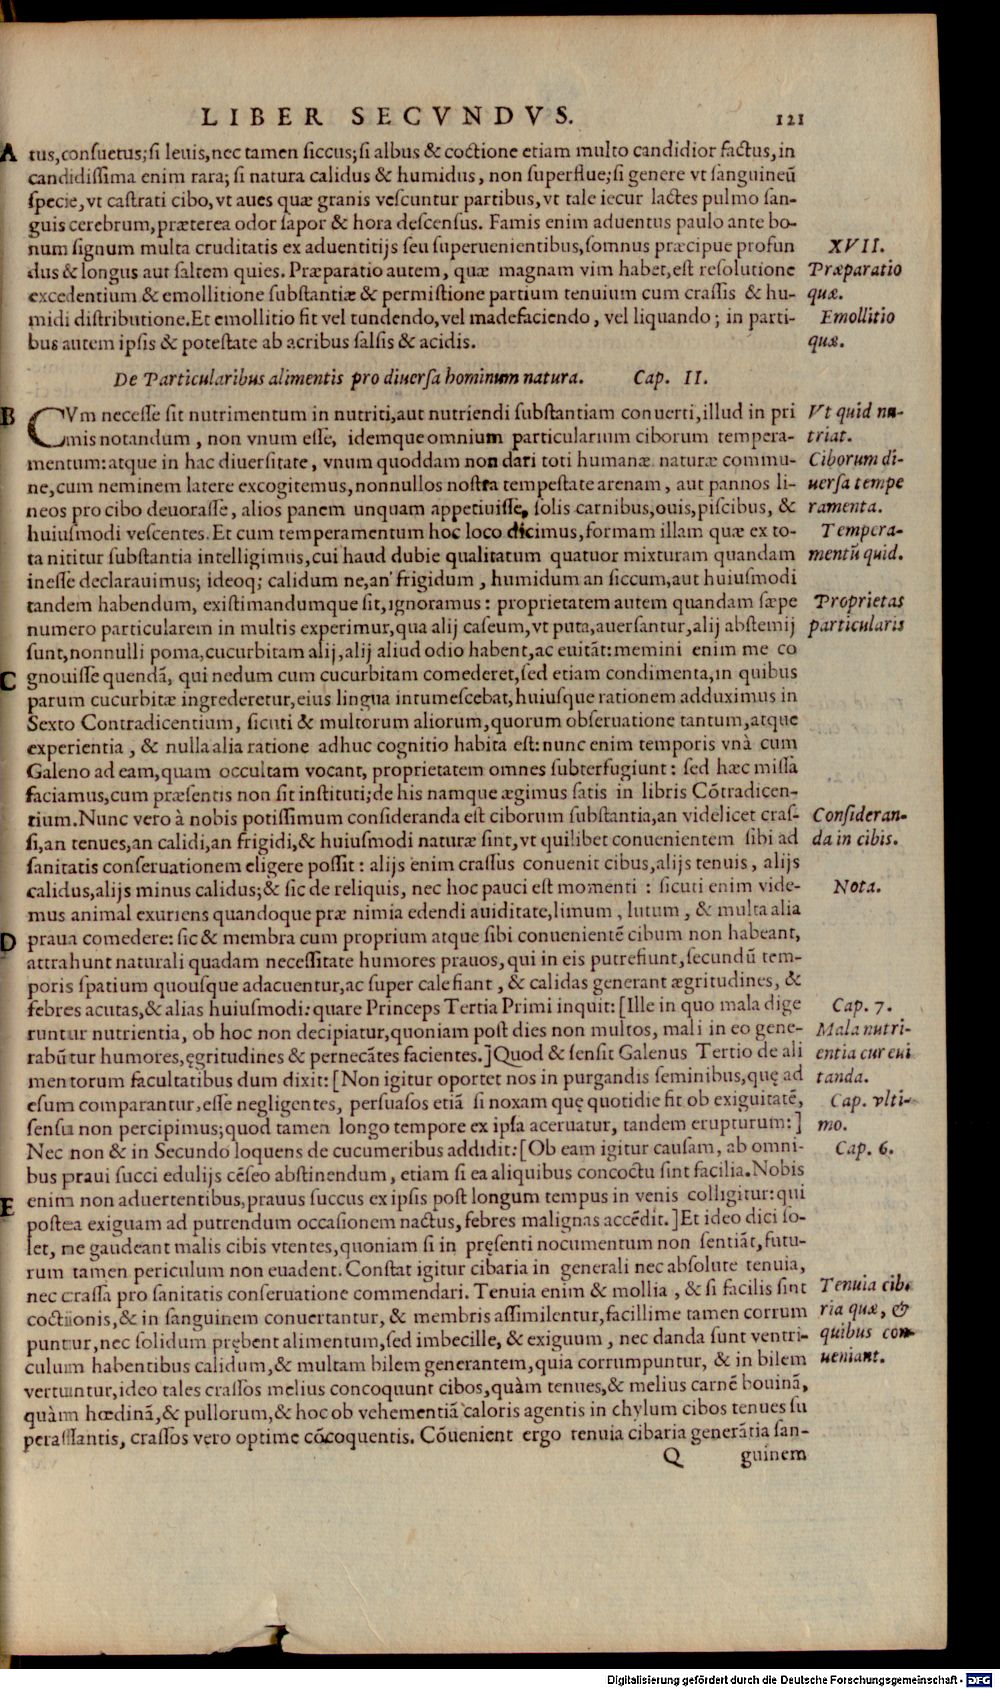 LIBER SECVNDVS. 121
A tus, consuetus; si leuis, nec tamen siccus; si albus & coctione etiam multo candidior factus, in
candidissima enim rara; si natura calidus & humidus, non superflue; si genere vt sanguineũ
specie, vt castrati cibo, vt aues quæ granis vescuntur partibus, vt tale iecur lactes pulmo san-
guis cerebrum, præterea odor sapor & hora descensus. Famis enim aduentus paulo ante bo-
num signum multa cruditatis ex aduentitijs seu superuenientibus, somnus præcipue profun
dus & longus aut saltem quies. Præparatio autem, quæ magnam vim habet, est resolutione
excedentium & emollitione substantiæ & permistione partium tenuium cum crassis & hu-
midi distributione. Et emollitio fit vel tundendo, vel madefaciendo, vel liquando; in parti-
bus autem ipsis & potestate ab acribus salsis & acidis.
XVII.
Præparatio
quæ.
Emollitio
quæ.
De Particularibus alimentis pro diuersa hominum natura. Cap. II.
B CVm necesse sit nutrimentum in nutriti, aut nutriendi substantiam conuerti, illud in pri
mis notandum, non vnum esse, idemque omnium particularium ciborum tempera-
mentum: atque in hac diuersitate, vnum quoddam non dari toti humanæ naturæ commu-
ne, cum neminem latere excogitemus, nonnullos nostra tempestate arenam, aut pannos li-
neos pro cibo deuorasse, alios panem unquam appetiuisse, solis carnibus, ouis, piscibus, &
huiusmodi vescentes. Et cum temperamentum hoc loco dicimus, formam illam quæ ex to-
ta nititur substantia intelligimus, cui haud dubie qualitatum quatuor mixturam quandam
inesse declarauimus; ideoq; calidum ne, an frigidum, humidum an siccum, aut huiusmodi
tandem habendum, existimandumque sit, ignoramus: proprietatem autem quandam sæpe
numero particularem in multis experimur, qua alij caseum, vt puta, auersantur, alij abstemij
sunt, nonnulli poma, cucurbitam alij, alij aliud odio habent, ac euitãt: memini enim me co
C gnouisse quendã, qui nedum cum cucurbitam comederet, sed etiam condimenta, in quibus
parum cucurbitæ ingrederetur, eius lingua intumescebat, huiusque rationem adduximus in
Sexto Contradicentium, sicuti & multorum aliorum, quorum obseruatione tantum, atque
experientia, & nulla alia ratione adhuc cognitio habita est: nunc enim temporis vnà cum
Galeno ad eam, quam occultam vocant, proprietatem omnes subterfugiunt: sed hæc missa
faciamus, cum præsentis non sit instituti; de his namque ægimus satis in libris Cõtradicen-
tium. Nunc vero à nobis potissimum consideranda est ciborum substantia, an videlicet cras-
si, an tenues, an calidi, an frigidi, & huiusmodi naturæ sint, vt quilibet conuenientem sibi ad
sanitatis conseruationem eligere possit: alijs enim crassus conuenit cibus, alijs tenuis, alijs
calidus, alijs minus calidus; & sic de reliquis, nec hoc pauci est momenti: sicuti enim vide-
mus animal exuriens quandoque præ nimia edendi auiditate, limum, lutum, & multa alia
D praua comedere: sic & membra cum proprium atque sibi conuenientẽ cibum non habeant,
attrahunt naturali quadam necessitate humores prauos, qui in eis putrefiunt, secundũ tem-
poris spatium quousque adacuentur, ac super calefiant, & calidas generant ægritudines, &
febres acutas, & alias huiusmodi: quare Princeps Tertia Primi inquit: [Ille in quo mala dige
runtur nutrientia, ob hoc non decipiatur, quoniam post dies non multos, mali in eo gene-
rabũtur humores, ęgritudines & pernecãtes facientes.] Quod & sensit Galenus Tertio de ali
mentorum facultatibus dum dixit: [Non igitur oportet nos in purgandis seminibus, quę ad
esum comparantur, esse negligentes, persuasos etiã si noxam quę quotidie fit ob exiguitatẽ,
sensu non percipimus; quod tamen longo tempore ex ipsa aceruatur, tandem erupturum:]
Nec non & in Secundo loquens de cucumeribus addidit: [Ob eam igitur causam, ab omni-
bus praui succi edulijs cẽseo abstinendum, etiam si ea aliquibus concoctu sint facilia. Nobis
E enim non aduertentibus, prauus succus ex ipsis post longum tempus in venis colligitur: qui
postea exiguam ad putrendum occasionem nactus, febres malignas accẽdit.] Et ideo dici so-
let, ne gaudeant malis cibis vtentes, quoniam si in pręsenti nocumentum non sentiãt, futu-
rum tamen periculum non euadent. Constat igitur cibaria in generali nec absolute tenuia,
nec crassa pro sanitatis conseruatione commendari. Tenuia enim & mollia, & si facilis sint
coctionis, & in sanguinem conuertantur, & membris assimilentur, facillime tamen corrum
puntur, nec solidum prębent alimentum, sed imbecille, & exiguum, nec danda sunt ventri-
culum habentibus calidum, & multam bilem generantem, quia corrumpuntur, & in bilem
vertuntur, ideo tales crassos melius concoquunt cibos, quàm tenues, & melius carnẽ bouinã,
quàm hœdinã, & pullorum, & hoc ob vehementiã caloris agentis in chylum cibos tenues su
perassantis, crassos vero optime cõcoquentis. Cõuenient ergo tenuia cibaria generãtia san-
Q guinem
Vt quid nu-
triat.
Ciborum di-
uersa tempe
ramenta.
Tempera-
mentũ quid.
Proprietas
particularis
Consideran-
da in cibis.
Nota.
Cap. 7.
Mala nutri-
entia cur eui
tanda.
Cap. vlti-
mo.
Cap. 6.
Tenuia ciba
ria quæ, &
quibus con-
ueniant.
Digitalisierung gefördert durch die Deutsche Forschungsgemeinschaft - DFG